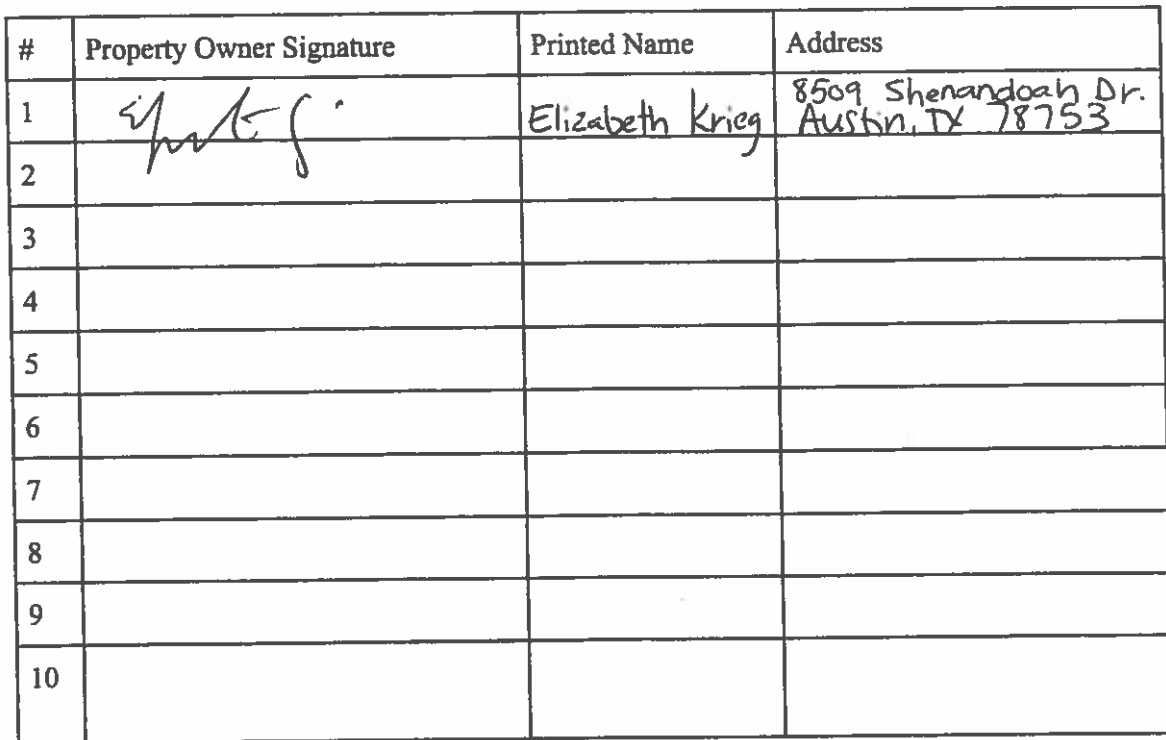 # Property Owner Signature Printed Name Address
1 Elizabeth Krieg 8509 Shenandoah Dr.
Austin, TX 78753
2
3
4
5
6
7
8
9
10